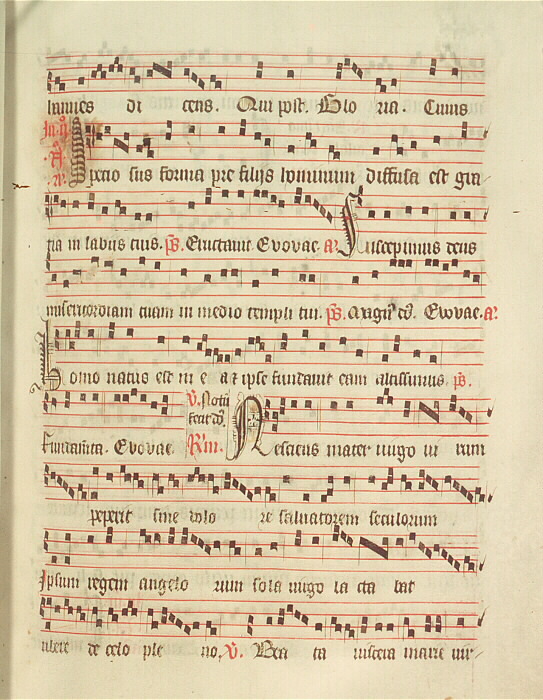 di cens. Qui post. Glo ria. Cuius
In .ij. n̊ A. Specio sus forma pre filijs hominum diffusa est gra
tia in labiis tuis. ps. Eructauit Evovae. a. Suscepimus deus
misericordiam tuam in medio templi tui. ps. Magn9 do. Evovae. a.
Homo natus est in e a et ipse fundauit eam altissimus. ps.
Fundamta. Evovae. v. Notū fecit do. Rm. Nesciens mater uirgo ui rum
peperit sine dolo re saluatorem seculorum
Ipsum regem angelo rum sola uirgo la cta bat
ubere de celo ple no. v. Bea ta uiscera marie uir